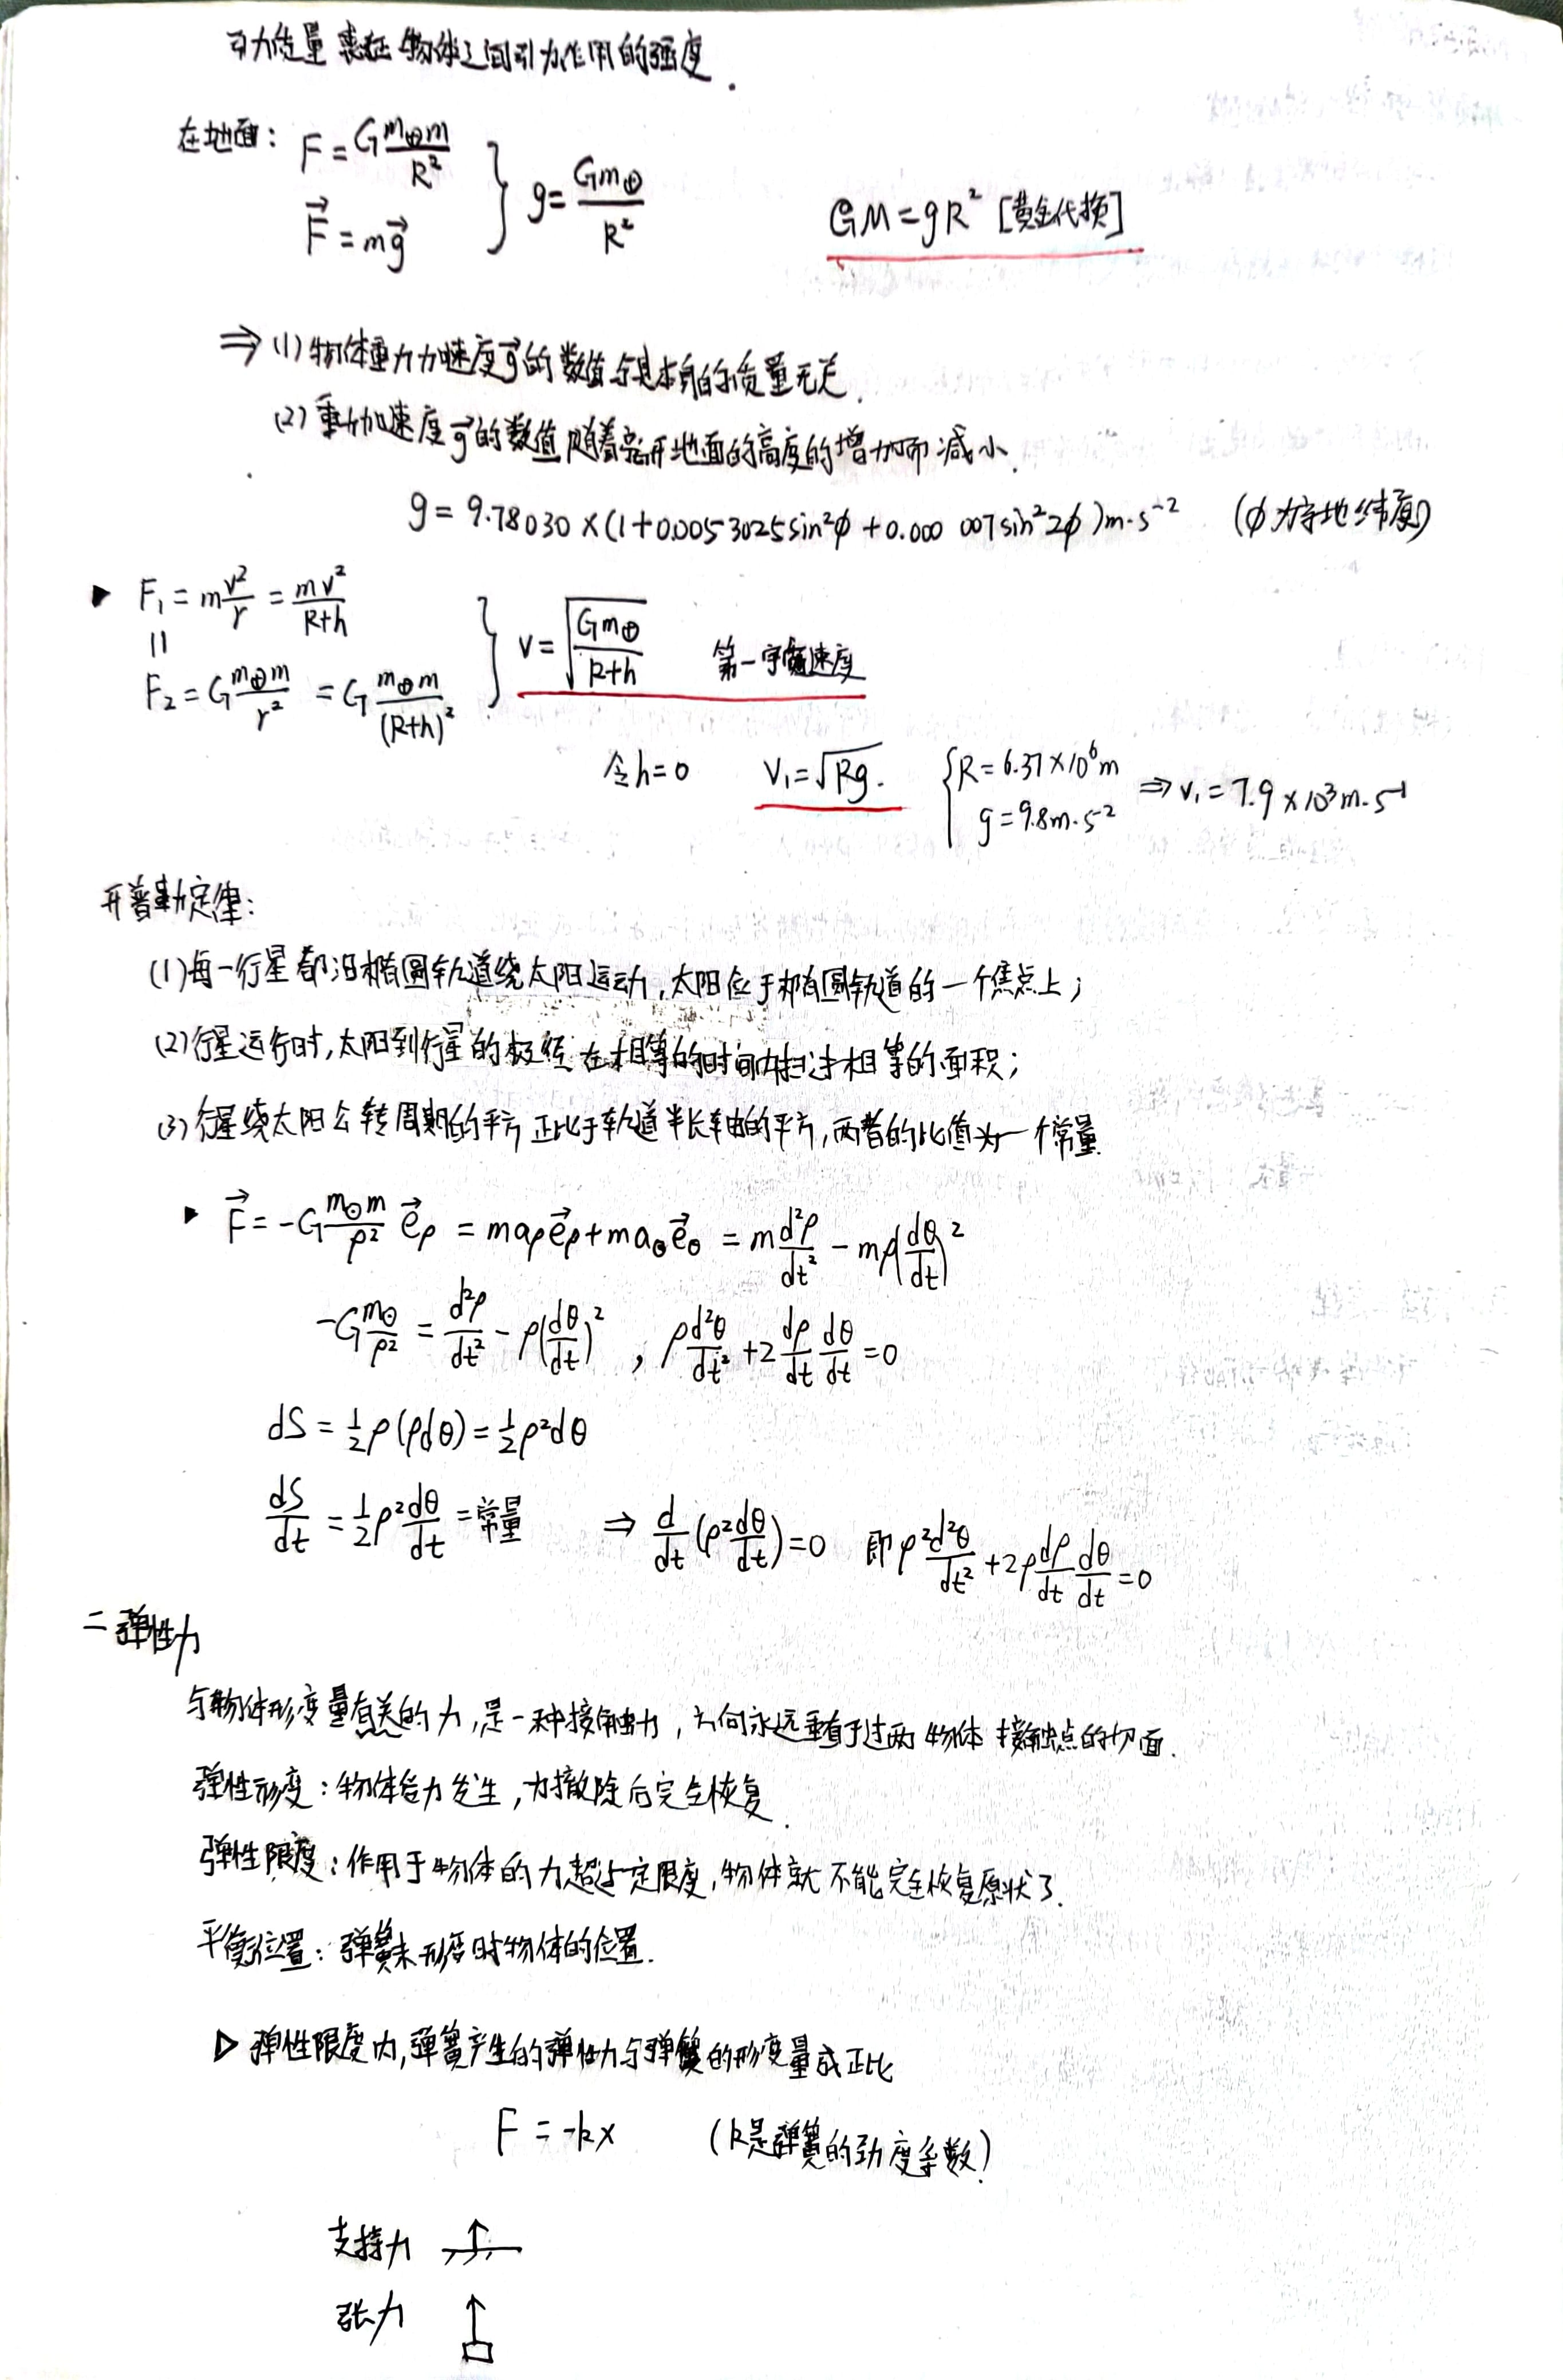 引力质量 表征 物体之间引力作用的强度.
在地面: F = G m⊕m/R²
F⃗ = mg⃗ } g = Gm⊕/R² GM = gR² [黄金代换]
⇒ (1) 物体重力加速度g⃗的数值与其本身的质量无关.
(2) 重力加速度g⃗的数值随着离开地面的高度的增加而减小.
g = 9.78030×(1+0.0053025sin²φ+0.000 007sin²2φ)m·s⁻² (φ为当地纬度)
▸ F₁ = m v²/r = mv²/(R+h)
||
F₂ = G m⊕m/r² = G m⊕m/(R+h)² } v = √(Gm⊕/(R+h)) 第一宇宙速度
令h=0 v₁=√Rg. { R=6.37×10⁶m g=9.8m·s⁻² ⇒ v₁=7.9×10³m·s⁻¹
开普勒定律:
(1) 每一行星都沿椭圆轨道绕太阳运动,太阳位于椭圆轨道的一个焦点上;
(2) 行星运行时,太阳到行星的极径在相等的时间内扫过相等的面积;
(3) 行星绕太阳公转周期的平方正比于轨道半长轴的平方,两者的比值为一个常量.
▸ F⃗ = -G m⊙m/ρ² e⃗ρ = maρe⃗ρ+maθe⃗θ = m d²ρ/dt² - mρ(dθ/dt)²
-G m⊙/ρ² = d²ρ/dt² - ρ(dθ/dt)² , ρ d²θ/dt² + 2 dρ/dt dθ/dt = 0
dS = ½ρ(ρdθ) = ½ρ²dθ
dS/dt = ½ρ² dθ/dt = 常量 ⇒ d/dt(ρ² dθ/dt)=0 即 ρ² d²θ/dt² + 2ρ dρ/dt dθ/dt = 0
二 弹性力
与物体形变量有关的力,是一种接触力,方向永远垂直于过两物体接触点的切面.
弹性形变:物体受力发生,力撤除后完全恢复.
弹性限度:作用于物体的力超过一定限度,物体就不能完全恢复原状了.
平衡位置:弹簧未形变时物体的位置.
▷ 弹性限度内,弹簧产生的弹性力与弹簧的形变量成正比
F = -kx (k是弹簧的劲度系数)
支持力
张力